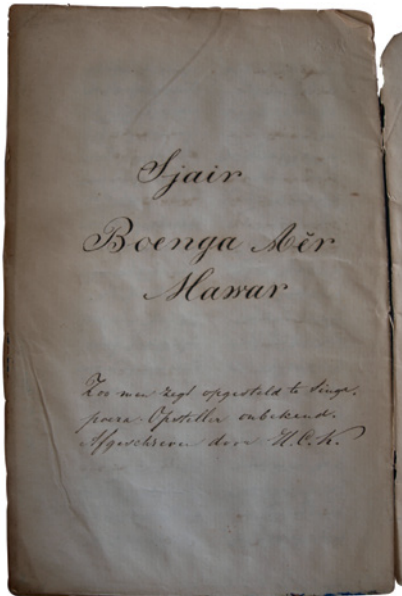 Sjair
Boenga Aĕr
Mawar
Zoo men zegt opgesteld te Singa-
poera. Opsteller onbekend.
Afgeschreven door H.C.K.